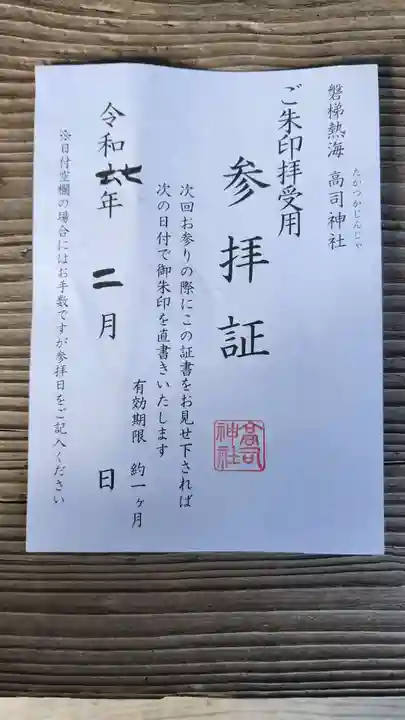 磐梯熱海 高司神社
たかつかじんじゃ
ご朱印拝受用
参拝証
次回お参りの際にこの証書をお見せ下されば
次の日付で御朱印を直書きいたします
有効期限 約一ヶ月
令和七年 二月 日
※日付空欄の場合にはお手数ですが参拝日をご記入ください
高司
神社